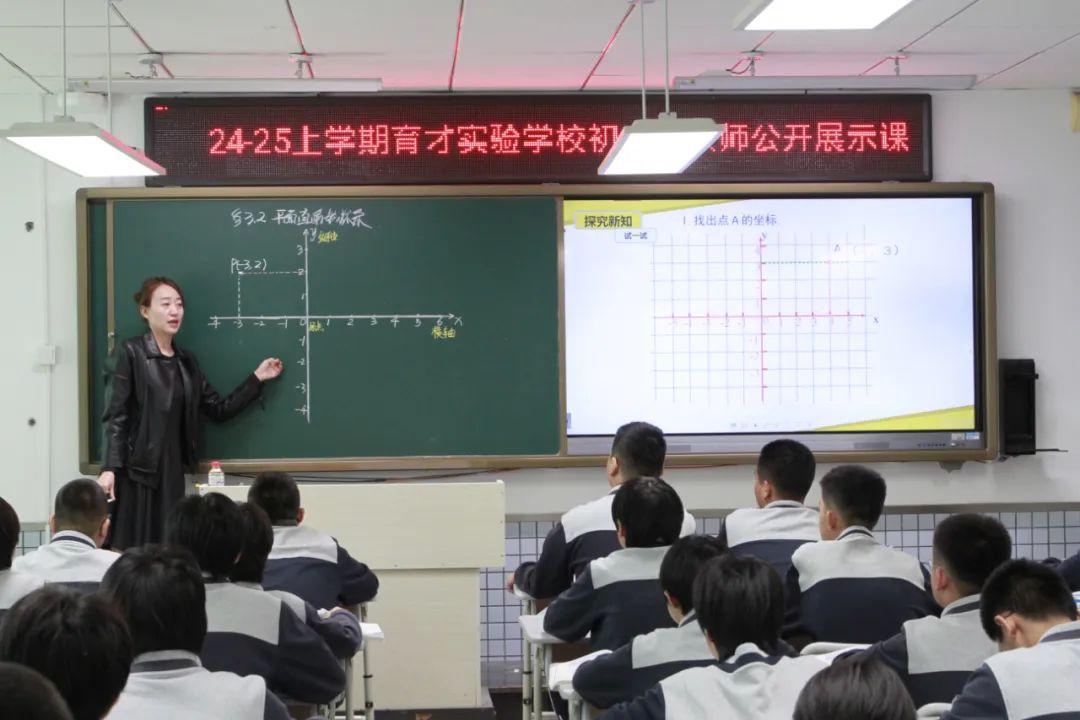 24-25上学期育才实验学校初 师公开展示课
§3.2 平面直角坐标系
y 纵轴
3
P(-3,2)
2
1
-4 -3 -2 -1 0 1 2 3 4 5 6 x
原点
横轴
-1
-2
-3
-4
探究新知
试一试
1. 找出点A的坐标.
y
A 3)
x